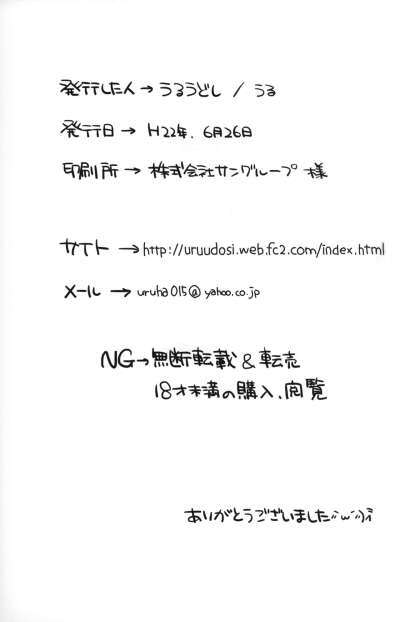 発行した人→うるうどし / うる
発行日→H22年.6月26日
印刷所→株式会社サングループ様
サイト→http://uruudosi.web.fc2.com/index.html
メール→uruha015@yahoo.co.jp
NG→無断転載&転売
18才未満の購入、閲覧
ありがとうございました